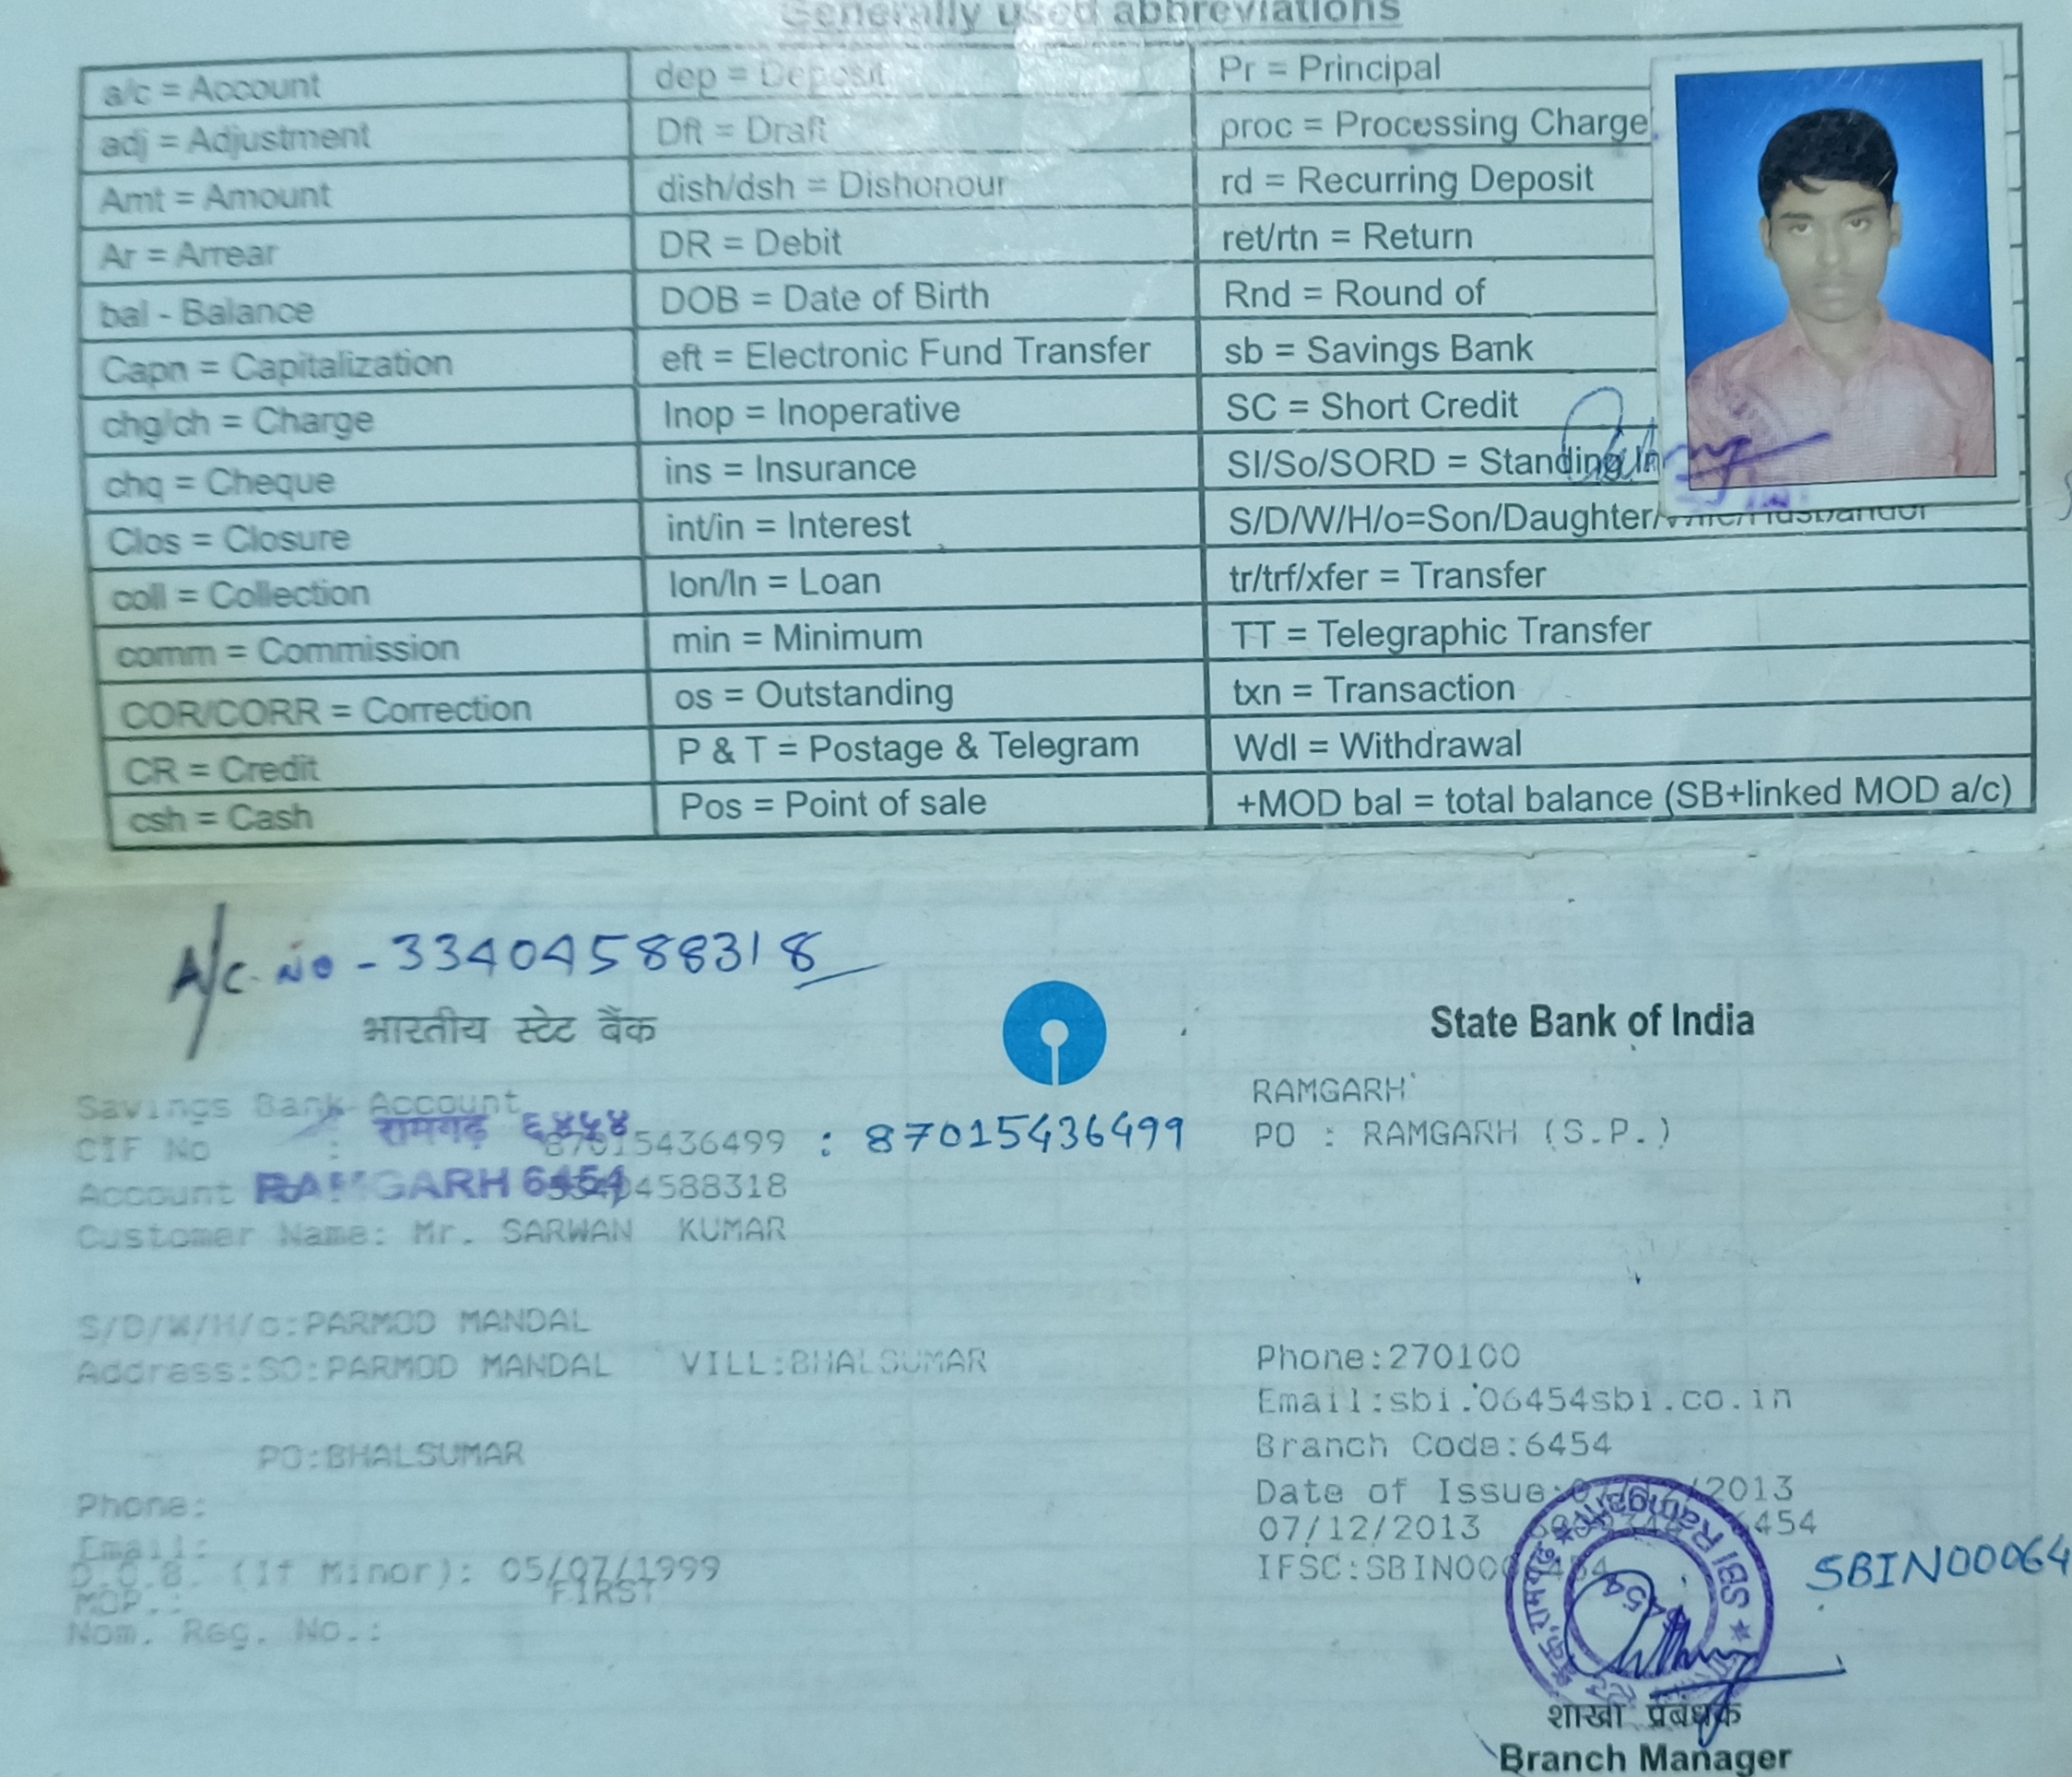 Generally used abbreviations
a/c = Account
dep = Deposit
Pr = Principal
adj = Adjustment
Dft = Draft
proc = Processing Charge
Amt = Amount
dish/dsh = Dishonour
rd = Recurring Deposit
Ar = Arrear
DR = Debit
ret/rtn = Return
bal - Balance
DOB = Date of Birth
Rnd = Round of
Capn = Capitalization
eft = Electronic Fund Transfer
sb = Savings Bank
chg/ch = Charge
Inop = Inoperative
SC = Short Credit
chq = Cheque
ins = Insurance
SI/So/SORD = Standing In
Clos = Closure
int/in = Interest
S/D/W/H/o=Son/Daughter/Wife/Husbandof
coll = Collection
lon/ln = Loan
tr/trf/xfer = Transfer
comm = Commission
min = Minimum
TT = Telegraphic Transfer
COR/CORR = Correction
os = Outstanding
txn = Transaction
CR = Credit
P & T = Postage & Telegram
Wdl = Withdrawal
csh = Cash
Pos = Point of sale
+MOD bal = total balance (SB+linked MOD a/c)
A/c. No - 33404588318
भारतीय स्टेट बैंक
State Bank of India
Savings Bank Account
RAMGARH
रामगढ़ ६४५४
CIF No : 87015436499 : 87015436499
PO : RAMGARH (S.P.)
RAMGARH 6454
Account 33404588318
Customer Name: Mr. SARWAN KUMAR
S/D/W/H/o:PARMOD MANDAL
Address:SO:PARMOD MANDAL VILL:BHALSUMAR
Phone:270100
Email:sbi.06454sbi.co.in
PO:BHALSUMAR
Branch Code:6454
Phone:
Date of Issue: 2013
07/12/2013 6454
Email:
IFSC:SBIN000 454
SBIN00064
D.O.B. (If Minor): 05/07/1999
MOP.: FIRST
Nom. Reg. No.:
SBI Ramgarh
6454
शाखा प्रबंधक
Branch Manager